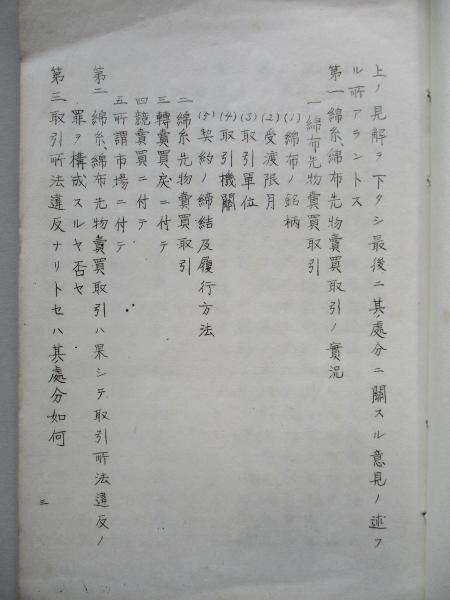 上ノ見解ヲ下クシ最後ニ其處分ニ關スル意見ノ述フ
ル所アラントス
第一綿糸、綿布先物賣買取引ノ實況
一綿布先物賣買取引
(1)綿布ノ銘柄
(2)受渡限月
(3)取引單位
(4)取引機關
(5)契約ノ締結及履行方法
二綿糸先物賣買取引
三轉賣買戻ニ付テ
四鏡賣買ニ付テ
五所謂市場ニ付テ
第二綿糸、綿布先物賣買取引ハ果シテ取引所法違反ノ
罪ヲ構成スルヤ否ヤ
第三取引所法違反ナリトセハ其處分如何
三